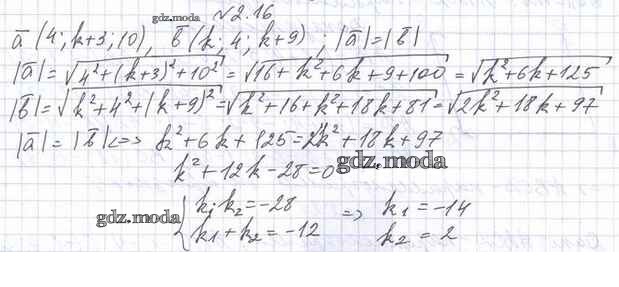 gdz.moda №2.16
a̅ (4; k+3; 10), b̅ (k; 4; k+9) ; |a̅|=|b̅|
|a̅|=√(4²+(k+3)²+10²)=√(16+k²+6k+9+100)=√(k²+6k+125)
|b̅|=√(k²+4²+(k+9)²)=√(k²+16+k²+18k+81)=√(2k²+18k+97)
|a̅|=|b̅|<=> k²+6k+125=2k²+18k+97
k²+12k-28=0
gdz.moda
gdz.moda
{k₁k₂=-28 => k₁=-14
k₁+k₂=-12 k₂=2